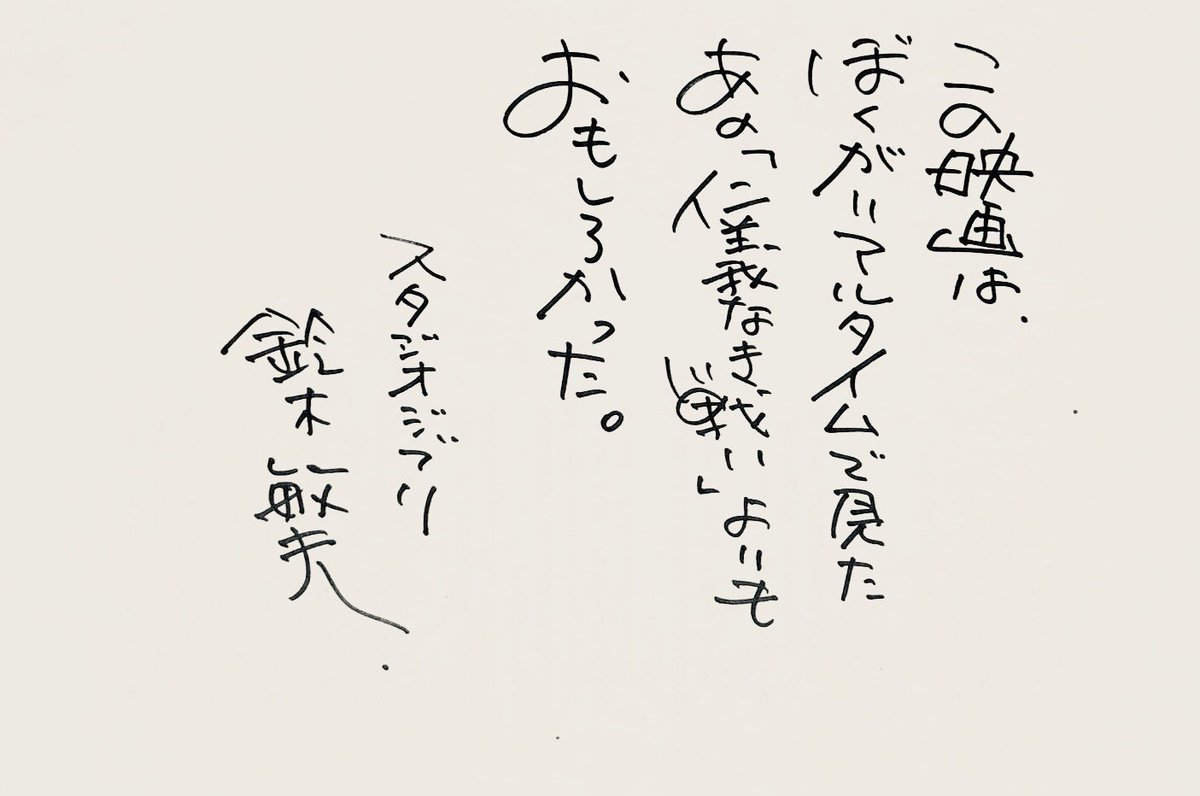 この映画は、
ぼくがリアルタイムで見た
あの「仁義なき戦い」よりも
おもしろかった。
スタジオジブリ
鈴木敏夫